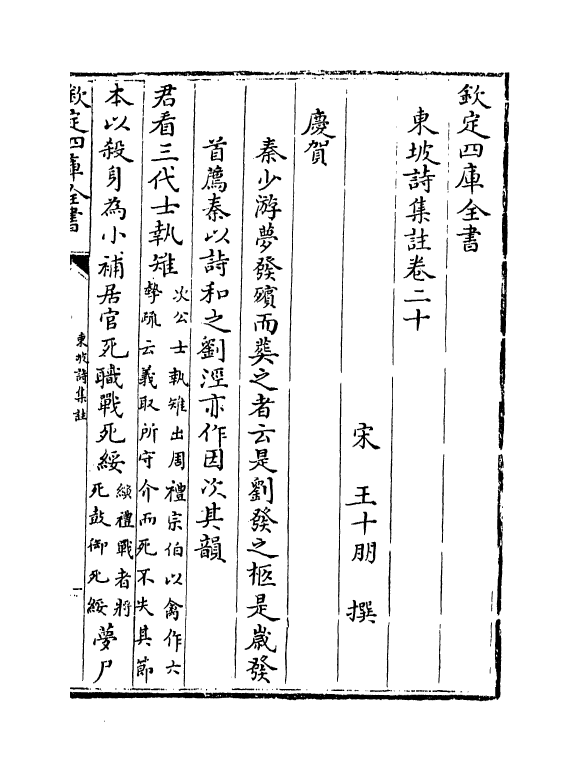 欽定四庫全書
東坡詩集註卷二十
宋 王十朋 撰
慶賀
秦少游夢發殯而葬之者云是劉發之柩是歲發
首薦秦以詩和之劉涇亦作因次其韻
君看三代士執雉
次公士執雉出周禮宗伯以禽作六
摯疏云義取所守介而死不失其節
本以殺身為小補居官死職戰死綏
縯禮戰者將
死鼓御死綏
夢尸
欽定四庫全書
東坡詩集註
一